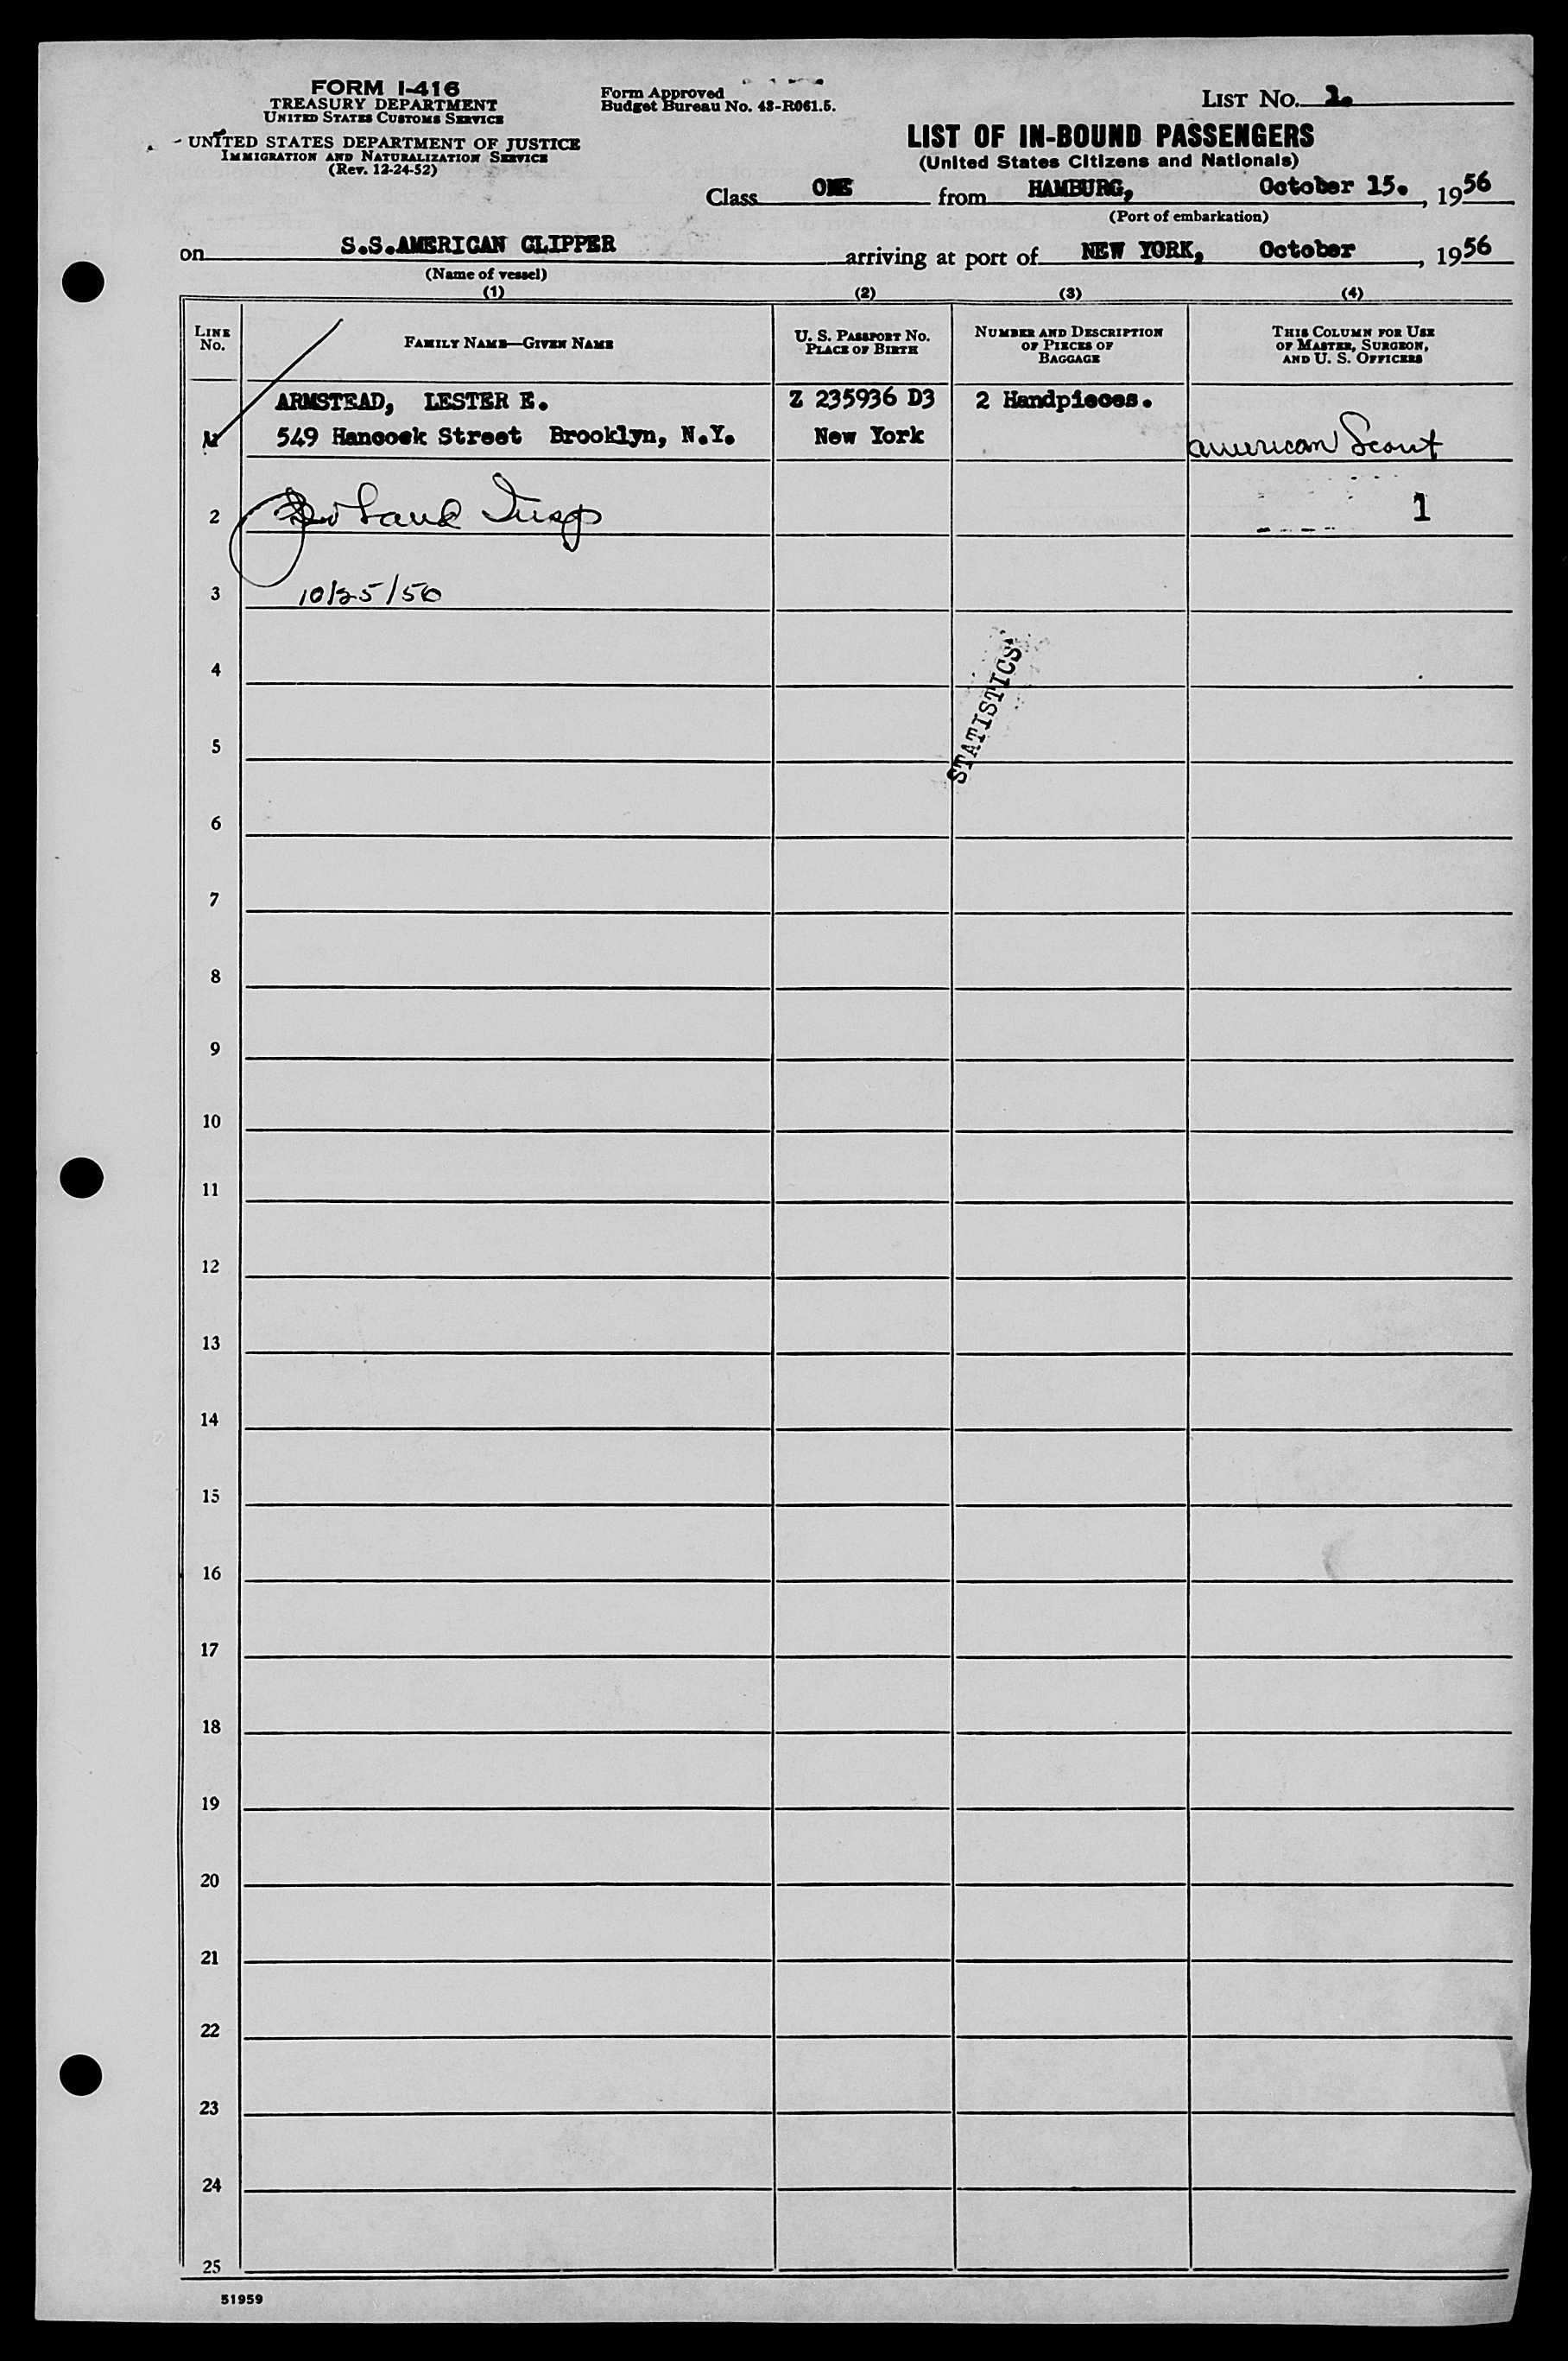 FORM I-416
TREASURY DEPARTMENT
UNITED STATES CUSTOMS SERVICE
UNITED STATES DEPARTMENT OF JUSTICE
IMMIGRATION AND NATURALIZATION SERVICE
(Rev. 12-24-52)
Form Approved
Budget Bureau No. 43-R061.5.
LIST No. 1.
LIST OF IN-BOUND PASSENGERS
(United States Citizens and Nationals)
Class ONE from HAMBURG, October 15. , 1956
(Port of embarkation)
on S.S.AMERICAN CLIPPER arriving at port of NEW YORK, October , 1956
(Name of vessel)
(1) (2) (3) (4)
LINE No. FAMILY NAME—GIVEN NAME U. S. PASSPORT No. PLACE OF BIRTH NUMBER AND DESCRIPTION OF PIECES OF BAGGAGE THIS COLUMN FOR USE OF MASTER, SURGEON, AND U. S. OFFICERS
ARMSTEAD, LESTER E. Z 235936 D3 2 Handpieces.
549 Hancock Street Brooklyn, N.Y. New York American Scout
2 Insp 1
3 10/25/56
4
STATISTICS
5
6
7
8
9
10
11
12
13
14
15
16
17
18
19
20
21
22
23
24
25
51959